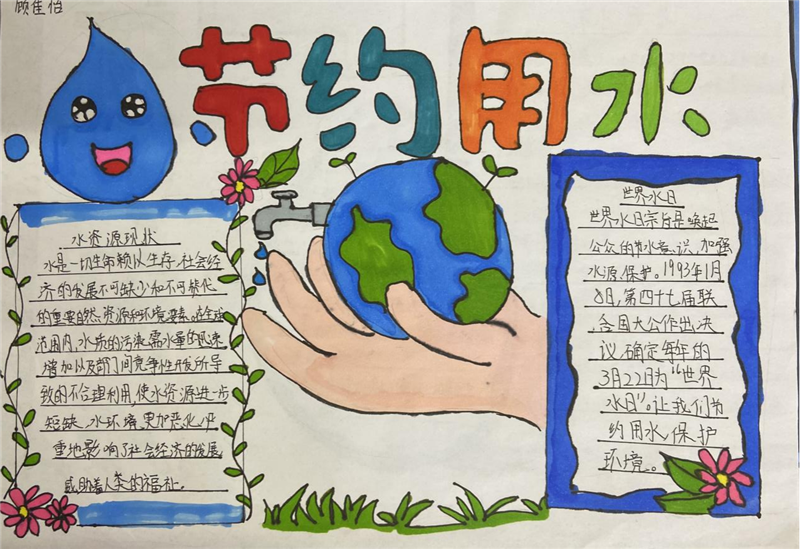 顾佳怡
节约用水
水资源现状
水是一切生命赖以生存,社会经
济的发展不可缺少和不可替代
的重要自然资源和环境要素。在全球
范围内,水质的污染需水量的迅速
增加以及部门间竞争性开发所导
致的不合理利用,使水资源进一步
短缺,水环境更加恶化,严
重地影响了社会经济的发展
威胁着人类的福祉。
世界水日
世界水日宗旨是唤起
公众的节水意识,加强
水源保护。1993年1月
8日,第四十七届联
合国大会作出决
议,确定每年的
3月22日为“世界
水日”。让我们节
约用水,保护
环境。